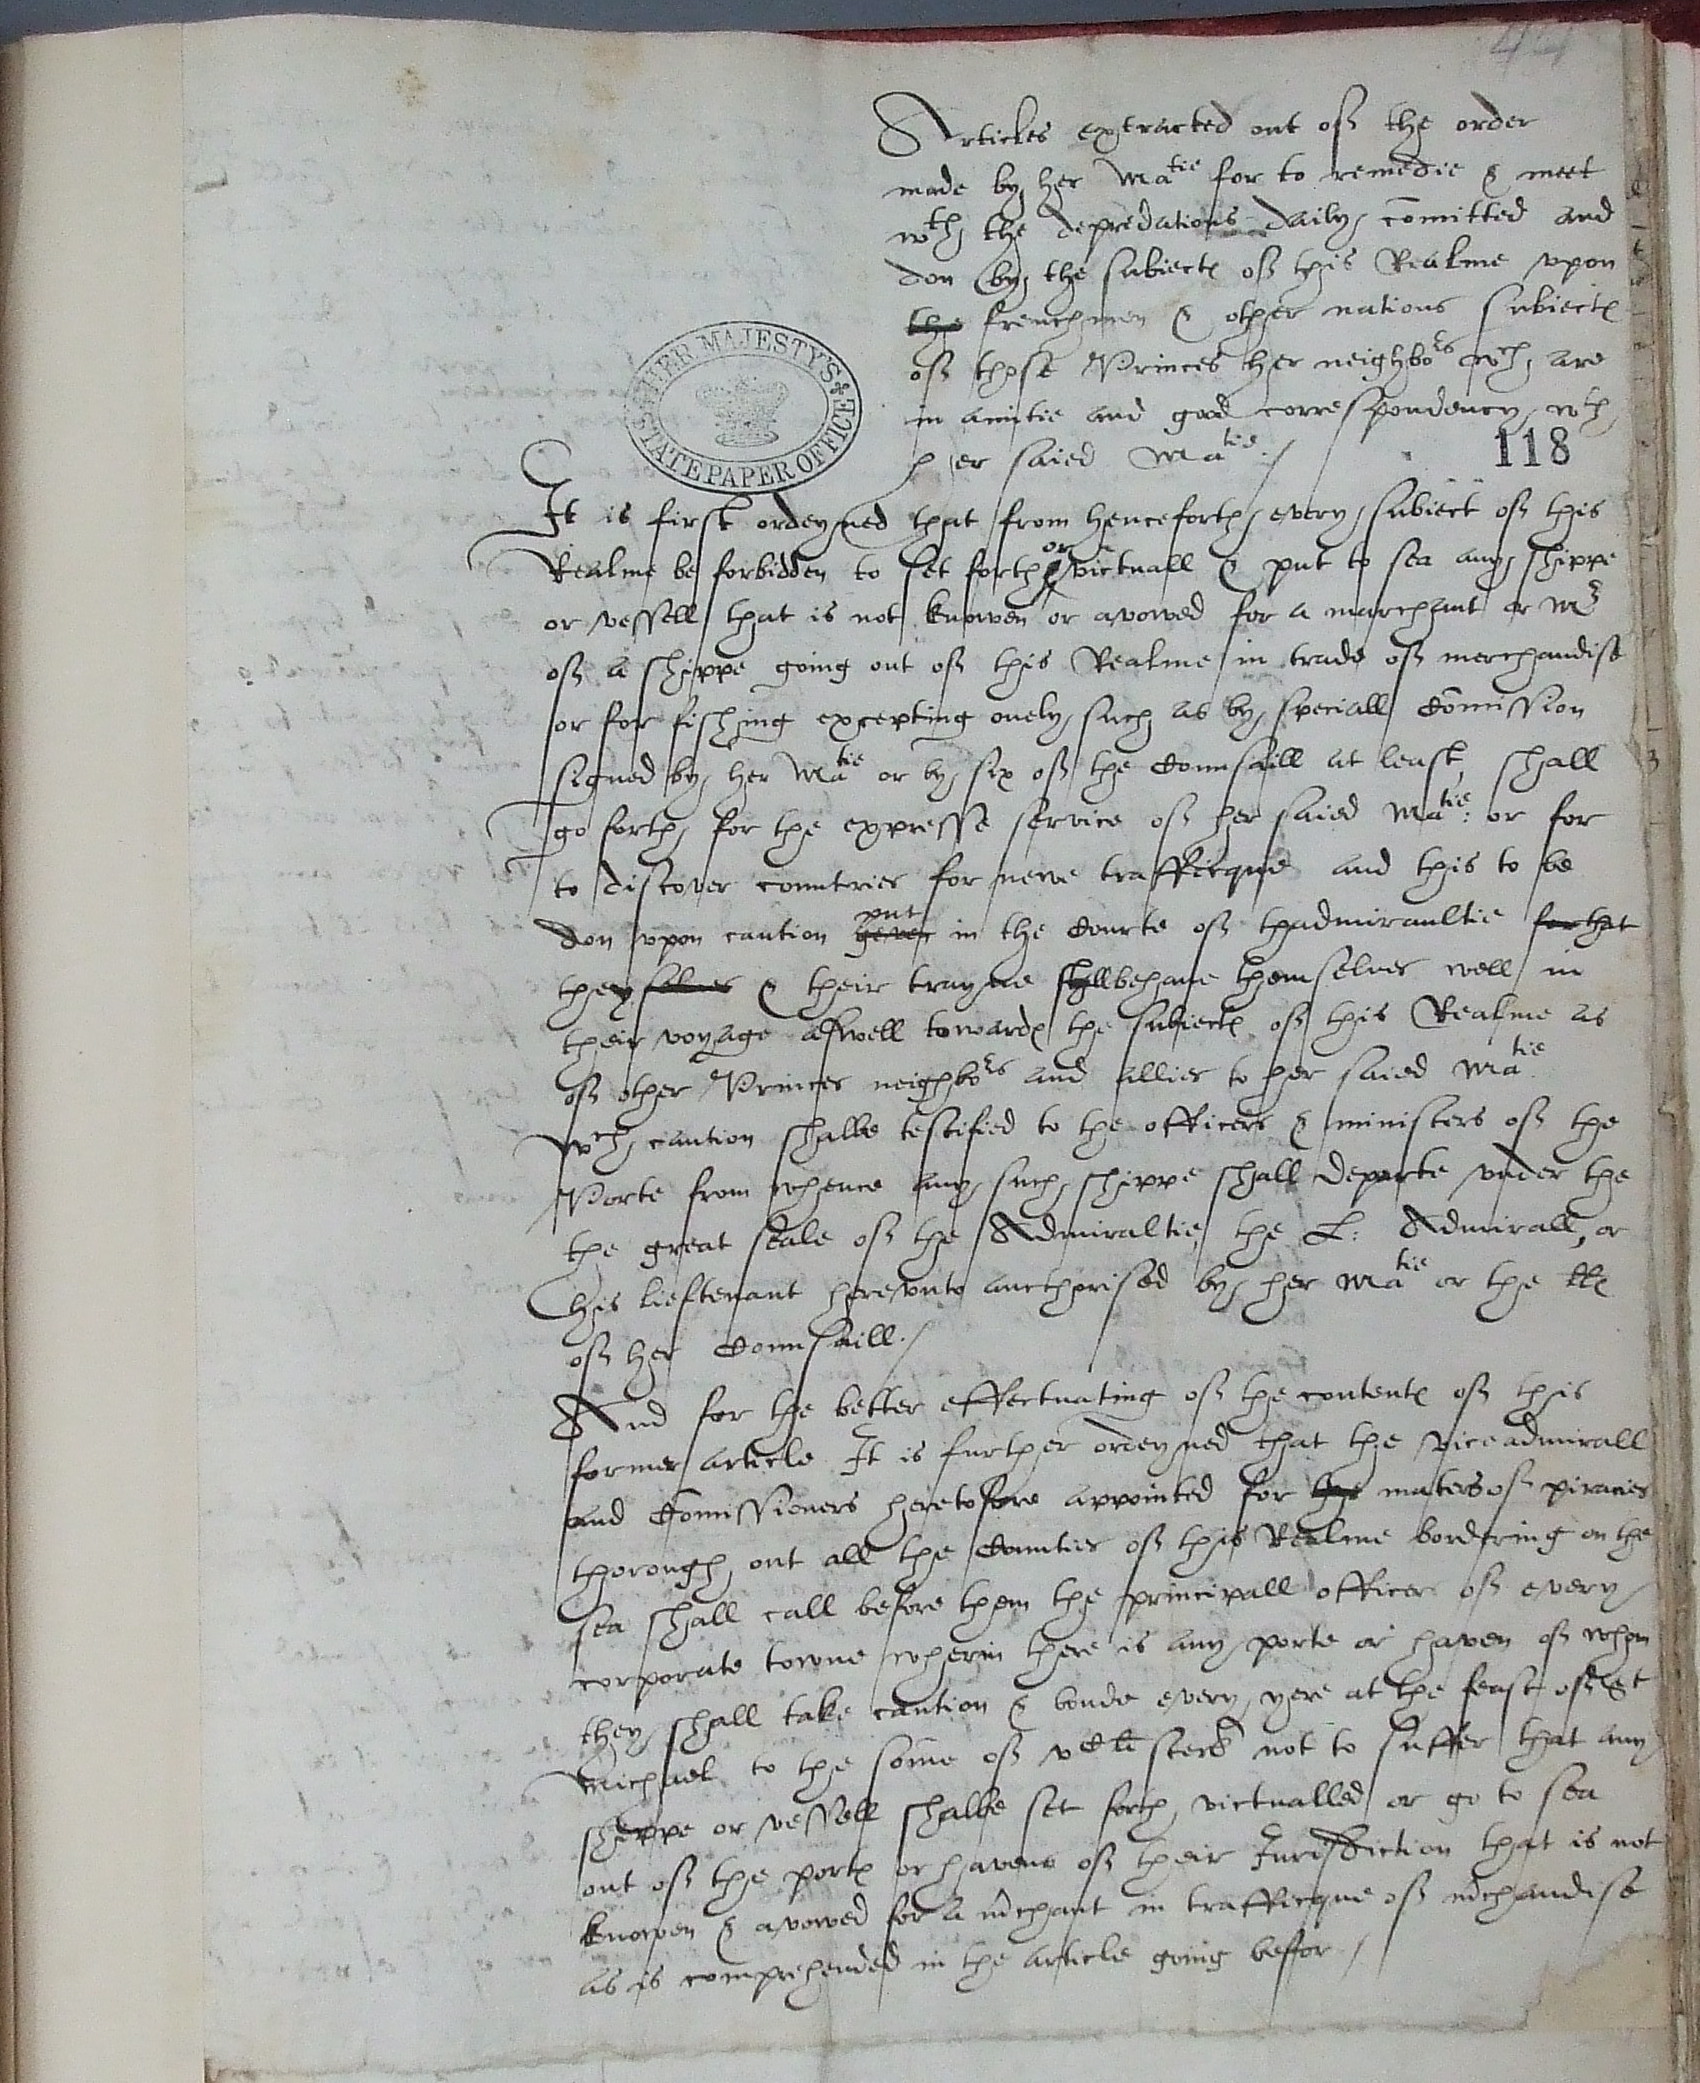 44
Articles extracted out off the order
made by her Matie for to remedie & meet
wth the depredations daily comitted and
don by the subiectes off this Realme vpon
the frenchmen & other nations subiectes
off those Princes her neighbors wch are
in amitie and good correspondency wth
her saied Matie ./
HER MAJESTY'S STATE PAPER OFFICE
118
It is first ordeyned that from henceforth every subiect off this
Realme be forbidden to set forth or victuall & put to sea any shippe
or vessell that is not knowen or avowed for a marchant or Mr
off a shippe going out off this Realme in trade off merchandise
or for fishing excepting onely such as by speciall Comission
signed by her Matie or by six off the Counsaill at least, shall
go forth for the expresse service off her saied Matie: or for
to discover countries for newe trafficque and this to be
don vpon caution geven put in the Courte off thadmiraultie for that
they selves & their trayne shall behave themselves well in
their voyage aswell towardes the subiectes off this Realme as
off other Princes neighbors and allies to her saied Matie
Wch caution shalbe testified to the officers & ministers off the
Porte from whence any such shippe shall departe vnder the
the great seale off the Admiraltie, the L: Admirall, or
his lieftenant herevnto aucthorised by her Matie or the LLes
off her Counsaill ./
And for the better effectuating off the contentes off this
former article It is further ordeyned that the viceadmirall
and Comissioners heretofore appointed for the maters off piracies
thorough out all the Counties off this Realme bordering on the
sea shall call before them the principall officer off every
corporate towne wherin there is any porte or haven off whom
they shall take caution & bonde every yere at the feast off St
Michael to the some off vC li sterl not to suffer that any
shippe or vessell shalbe set forth, victualled or go to sea
out off the portes or havens off their Jurisdiction that is not
knowen & avowed for a mchant in trafficque off mchandise
as is comprehended in the article going beffor ./